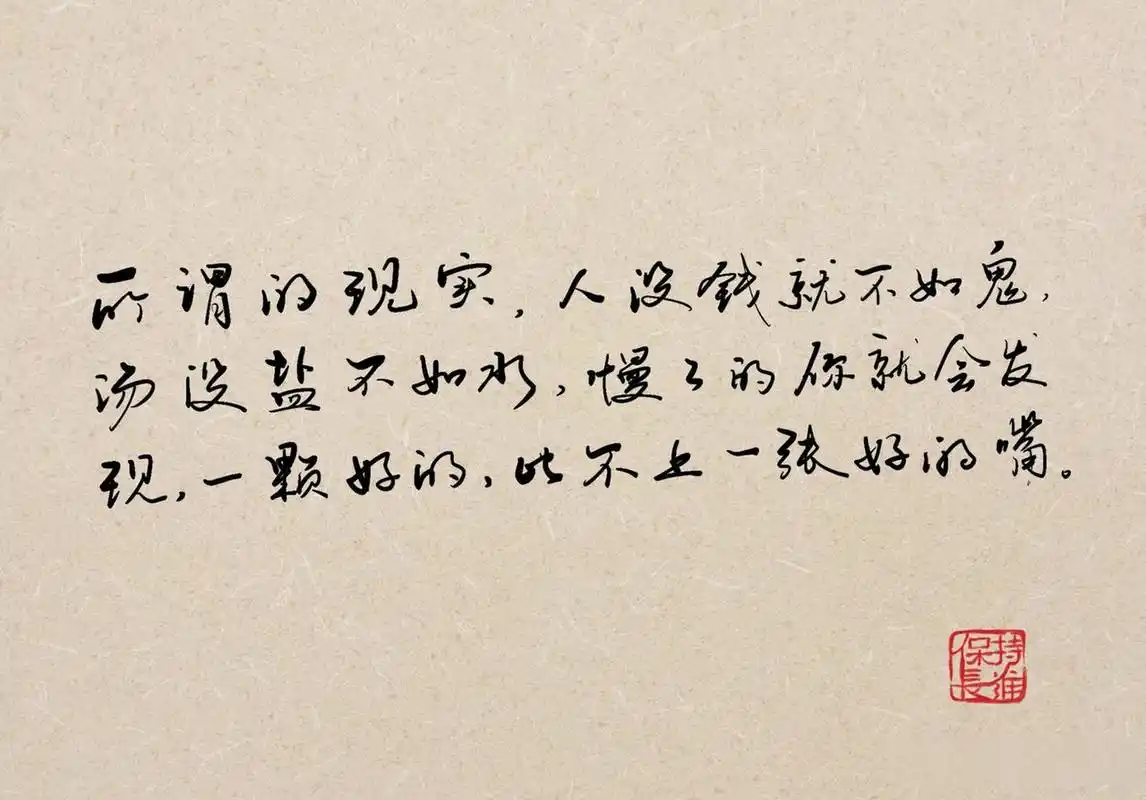 所谓的现实，人没钱就不如鬼，
汤没盐不如水，慢々的你就会发
现，一颗好的，比不上一张好的嘴。
保持
長進